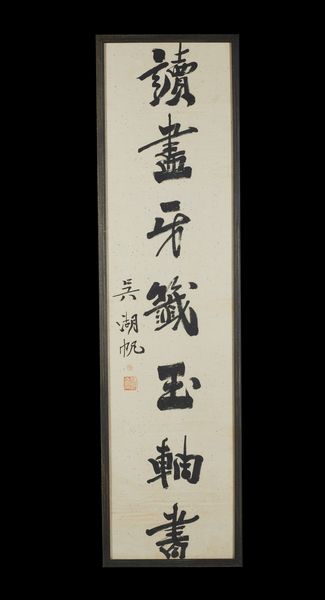 讀盡牙籤玉軸書
吳湖帆